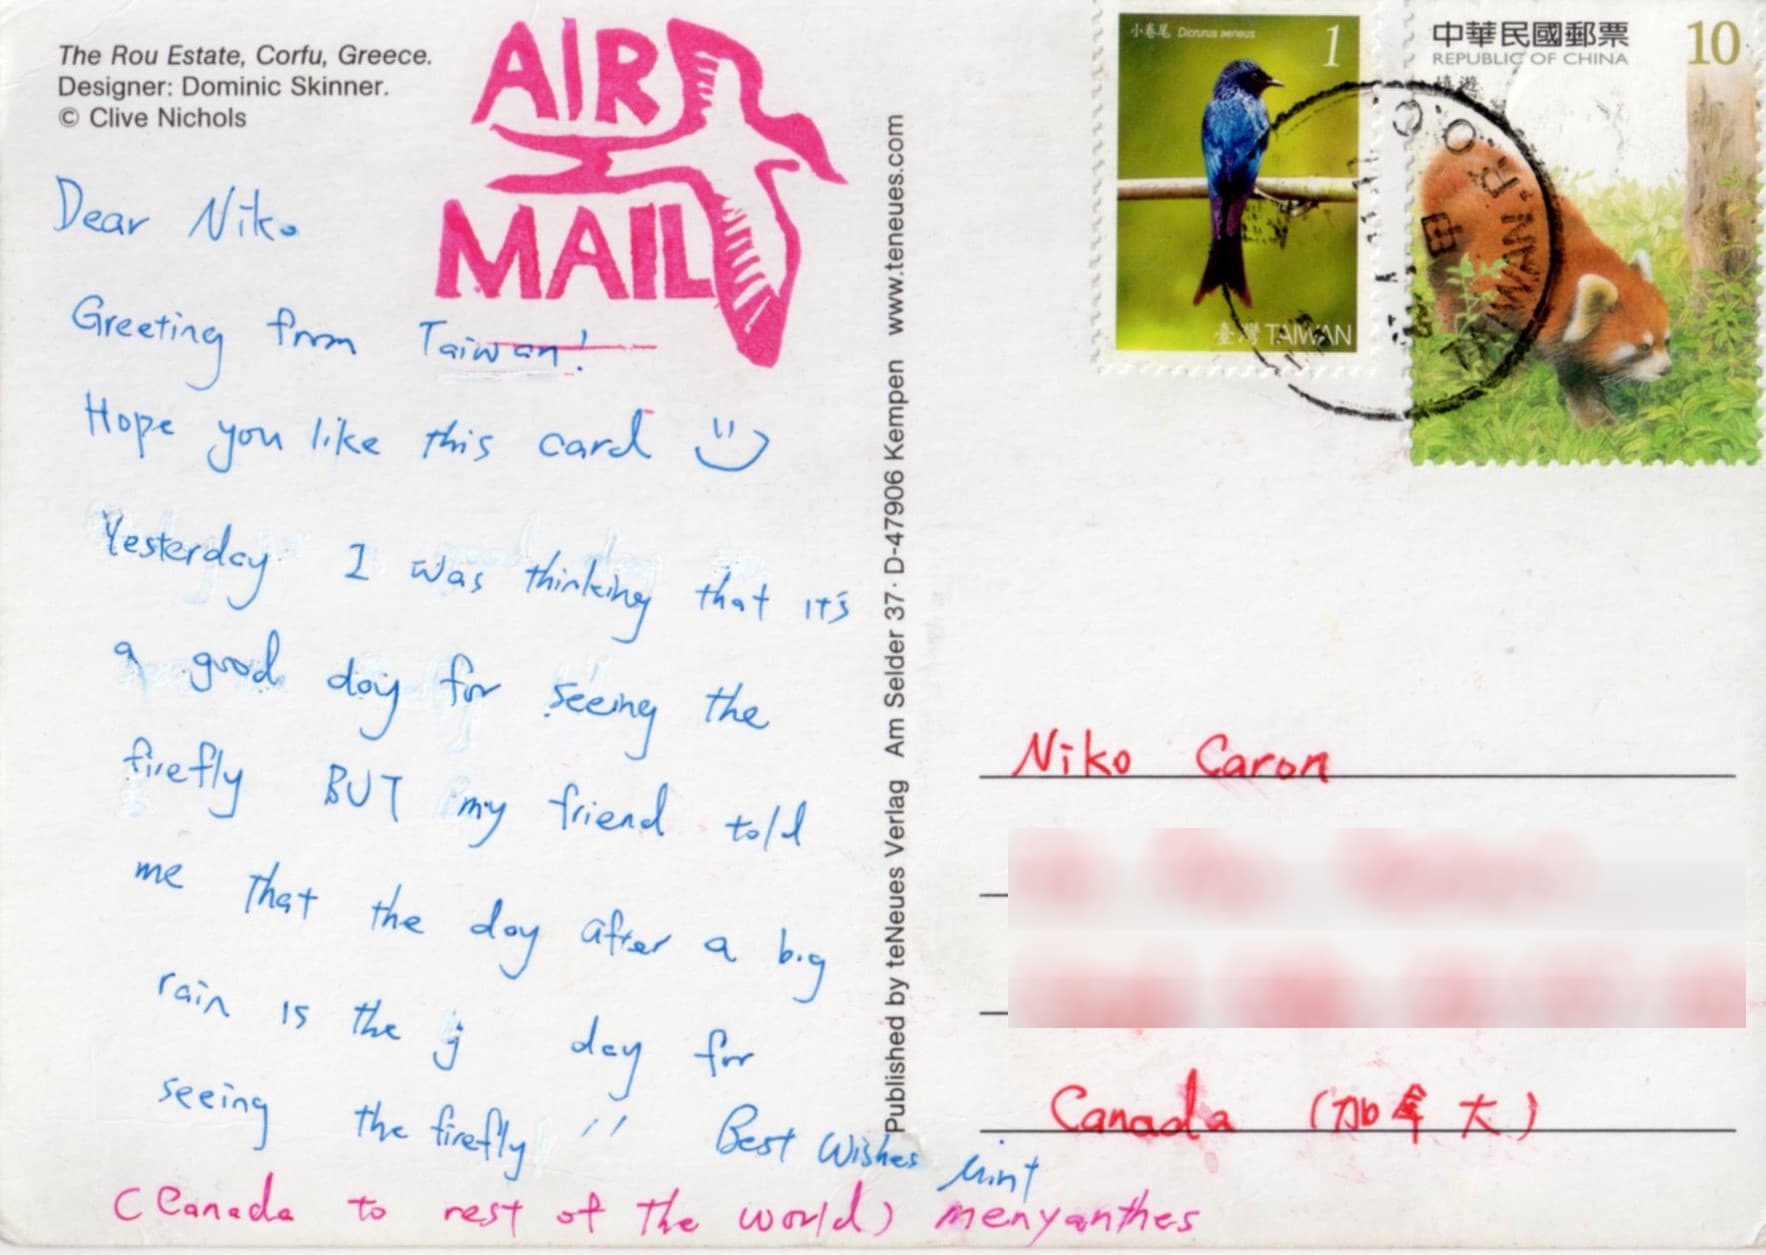 The Rou Estate, Corfu, Greece.
Designer: Dominic Skinner.
© Clive Nichols
AIR
MAIL
Dear Niko
Greeting from Taiwan!
Hope you like this card
Yesterday I was thinking that it's
a good day for seeing the
firefly BUT my friend told
me that the day after a big
rain is the day for
seeing the firefly !!
Best Wishes Mint
(Canada to rest of the world) menyanthes
Published by teNeues Verlag Am Selder 37 · D-47906 Kempen www.teneues.com
小卷尾 Dicrurus aeneus 1
臺灣 TAIWAN
中華民國郵票 10
REPUBLIC OF CHINA
TAIWAN R.O.C
Niko Caron
Canada (加拿大)